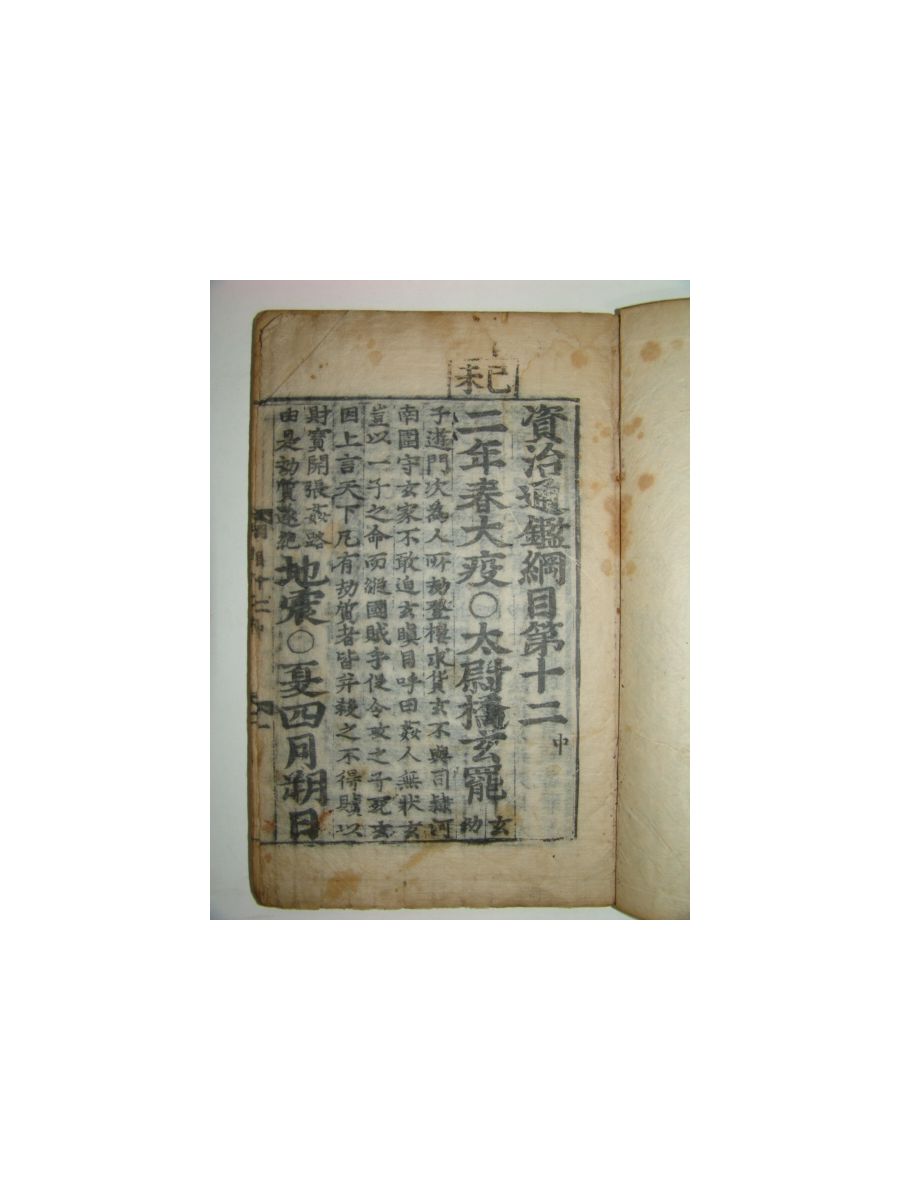 資治通鑑綱目第十二 中
己未
二年春大疫○太尉橋玄罷 玄幼
子遊門次為人所劫登樓求貨玄不與司隸河
南圍守玄家不敢迫玄瞋目呼曰姦人無狀玄
豈以一子之命而縱國賊乎促令攻之子死玄
因上言天下凡有劫質者皆并殺之不得贖以
財寶開張姦路
由是劫質遂絕
地震○夏四月朔日